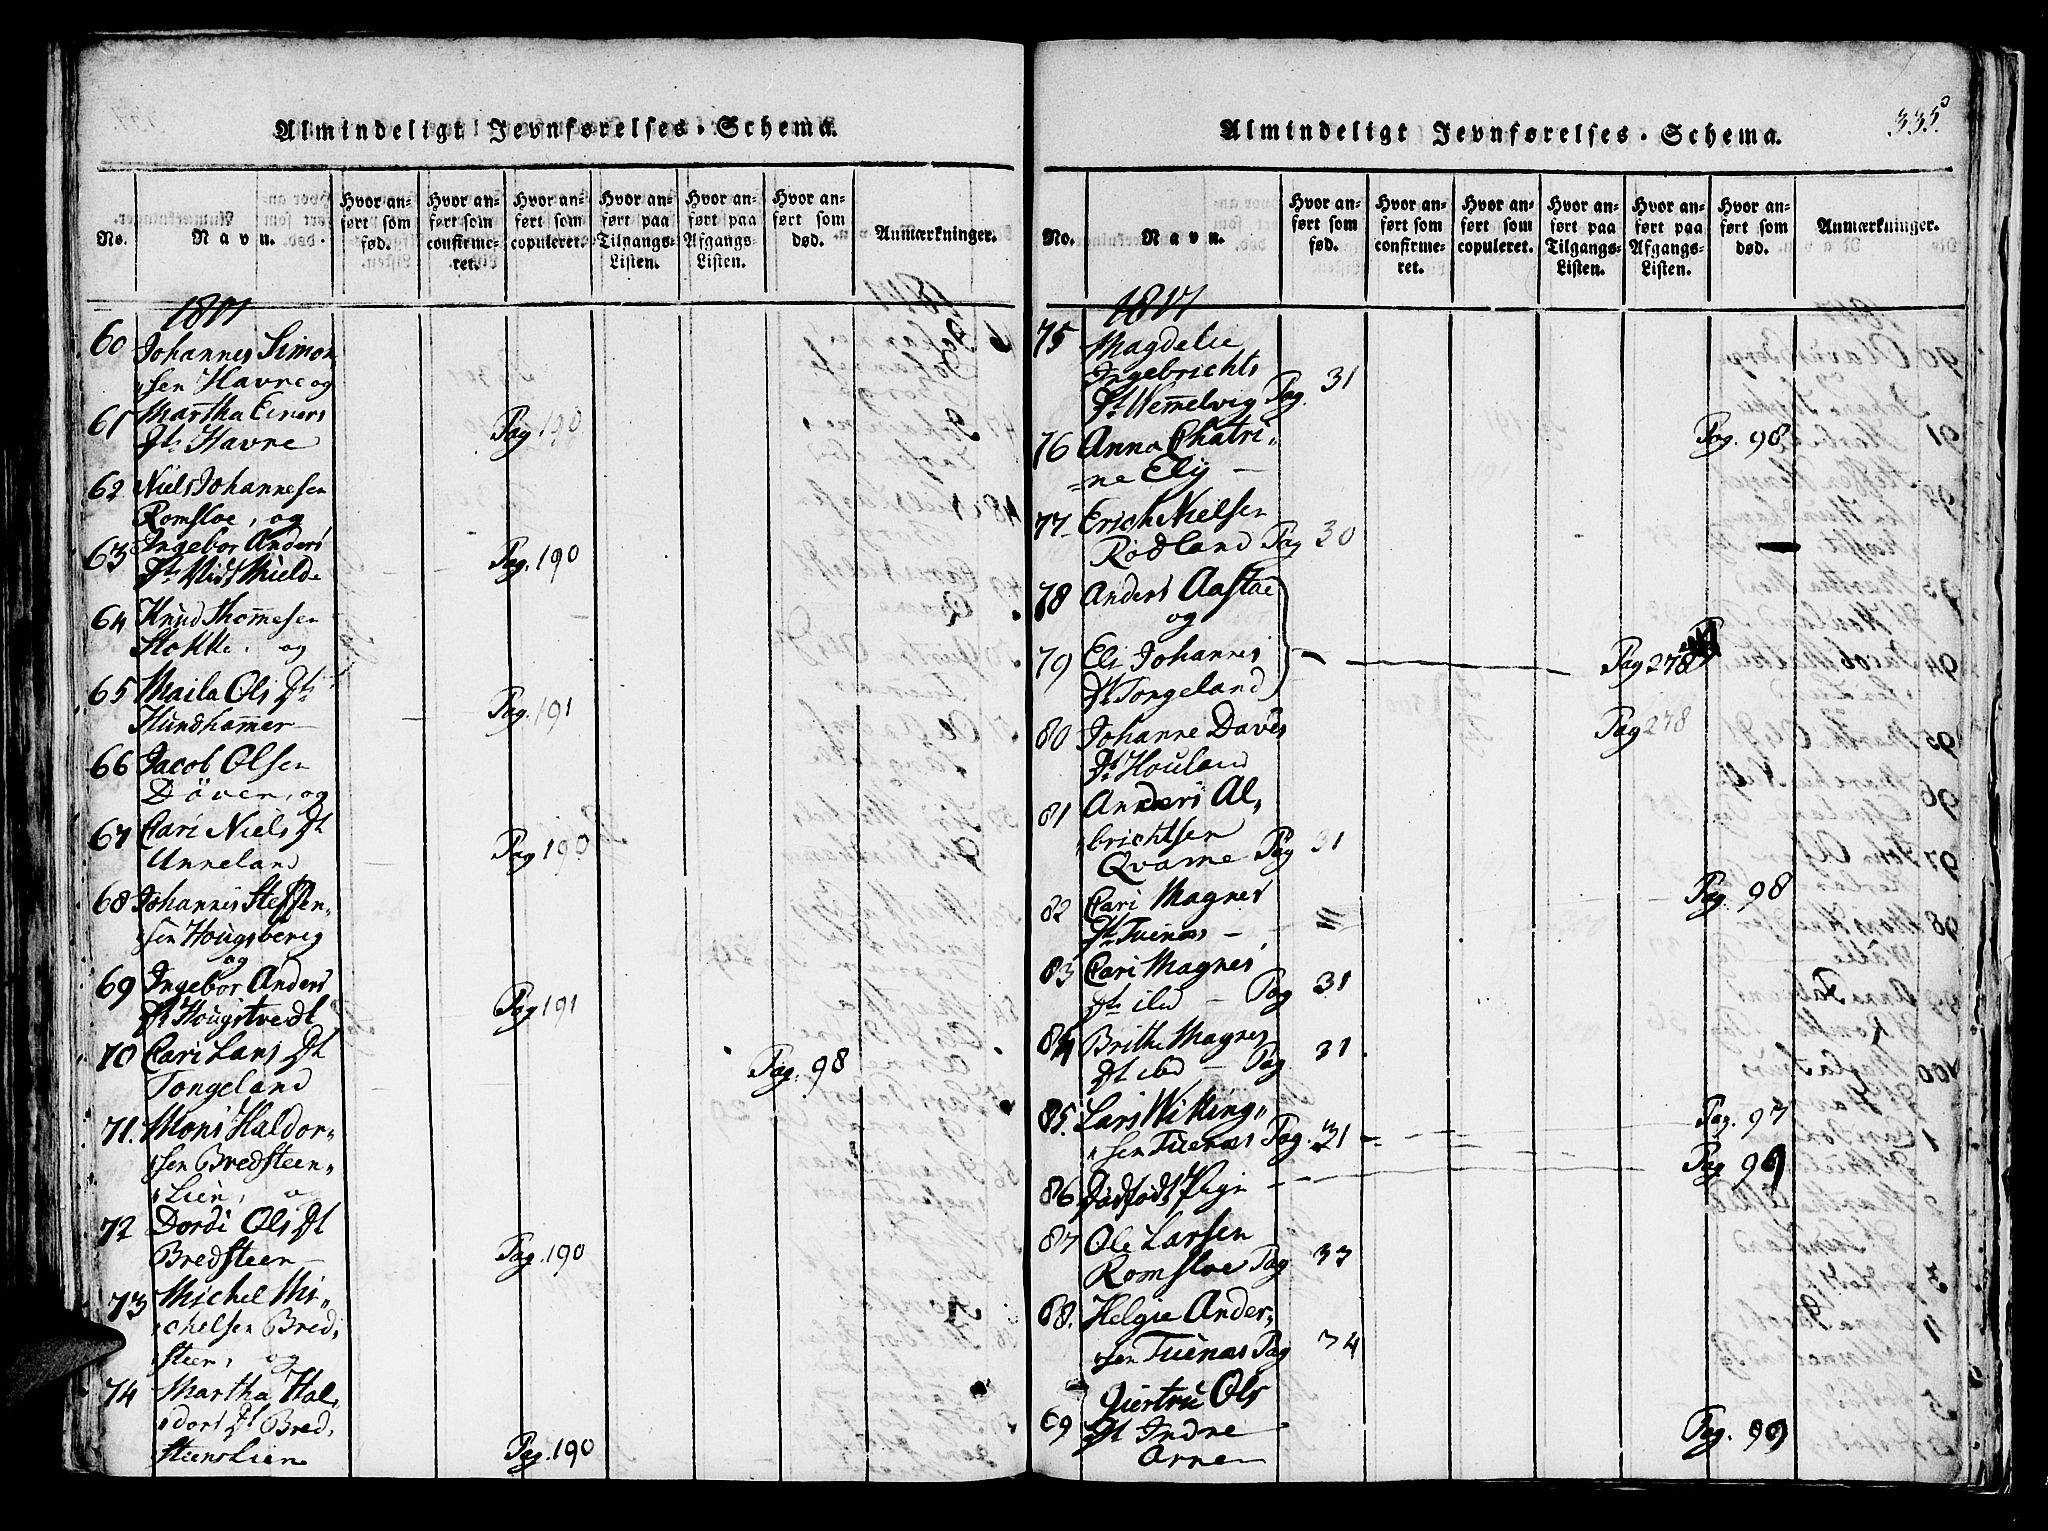 Almindeligt Jevnførelses-Schema.
No.
Navn.
Hvor anført som fød.
Hvor anført som confirmeret.
Hvor anført som copuleret.
Hvor anført paa Tilgangs-Listen.
Hvor anført paa Afgangs-Listen.
Hvor anført som død.
Anmærkninger.
1817
60 Johannes Simon
sen Havre og
61 Martha Einers
Dtr Havre Pag 190
62 Niels Johannesen
Romsloe, og
63 Ingebor Anders
Dtr Midtmielde Pag. 190
64 Knud Thommesen
Stokke. og
65 Maila Ols Dtr
Hundhammer Pag. 191
66 Jacob Olsen
Døven, og
67 Cari Niels Dt
Unneland Pag 190
68 Johannes Steffen
sen Hougsberig
og
69 Ingebor Anders
Dt Hougstvedt Pag 191
70 Cari Lars Dt
Tongeland Pag. 98
71. Mons Haldor
sen Bredsteen
Lien, og
72 Dordi Ols Dt
Bredsteen Pag. 190
73 Michel Mi
chelsen Bred
steen, og
74 Martha Hal
dors Dt Bred
steenslien Pag. 190
Almindeligt Jevnførelses-Schema.
335
No.
Navn.
Hvor anført som fød.
Hvor anført som confirmeret.
Hvor anført som copuleret.
Hvor anført paa Tilgangs-Listen.
Hvor anført paa Afgangs-Listen.
Hvor anført som død.
Anmærkninger.
1817
75 Magdelie
Ingebrichts
Dt Wemmelvig Pag. 31
76 Anna Chatri
ne Elÿ Pag. 98
77 Erich Nielsen
Rødland Pag 30
78 Anders Aastae
og
79 Eli Johannes
Dt Tongeland Pag 278
80 Johanne Davids
Dt Houland Pag 278
81 Anders Al
brichtsen
Qvame Pag 31
82 Cari Magnes
Dt Tuenæs Pag 98
83 Cari Magnes
Dtr ibd Pag 31
84 Brithe Magnes
Dt ibd Pag 31
85. Lars Witting
sen Tuenæs Pag. 31 Pag. 97
86 Dødfødt Pige Pag 99
87 Ole Larsen
Romsloe Pag 33
88. Helgie Ander
sen Tuenæs Pag 34
Giertru Ols
69 Dt Indre
Arne Pag. 99